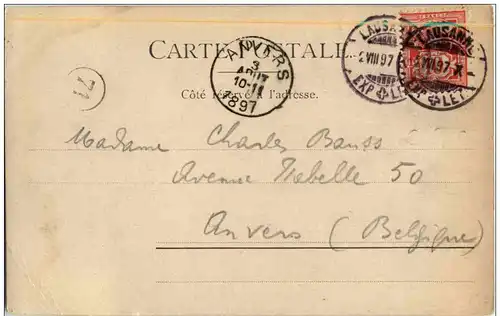 CARTE POSTALE.
ANVERS
3
AOUT
10-11
1897
LAUSANNE
2 VIII 97
EXP. LET.
LAUSANNE
VIII 97
EXP. LET.
Côté réservé à l'adresse.
Madame Charles Bauss
Avenue Isabelle 50
Anvers (Belgique)